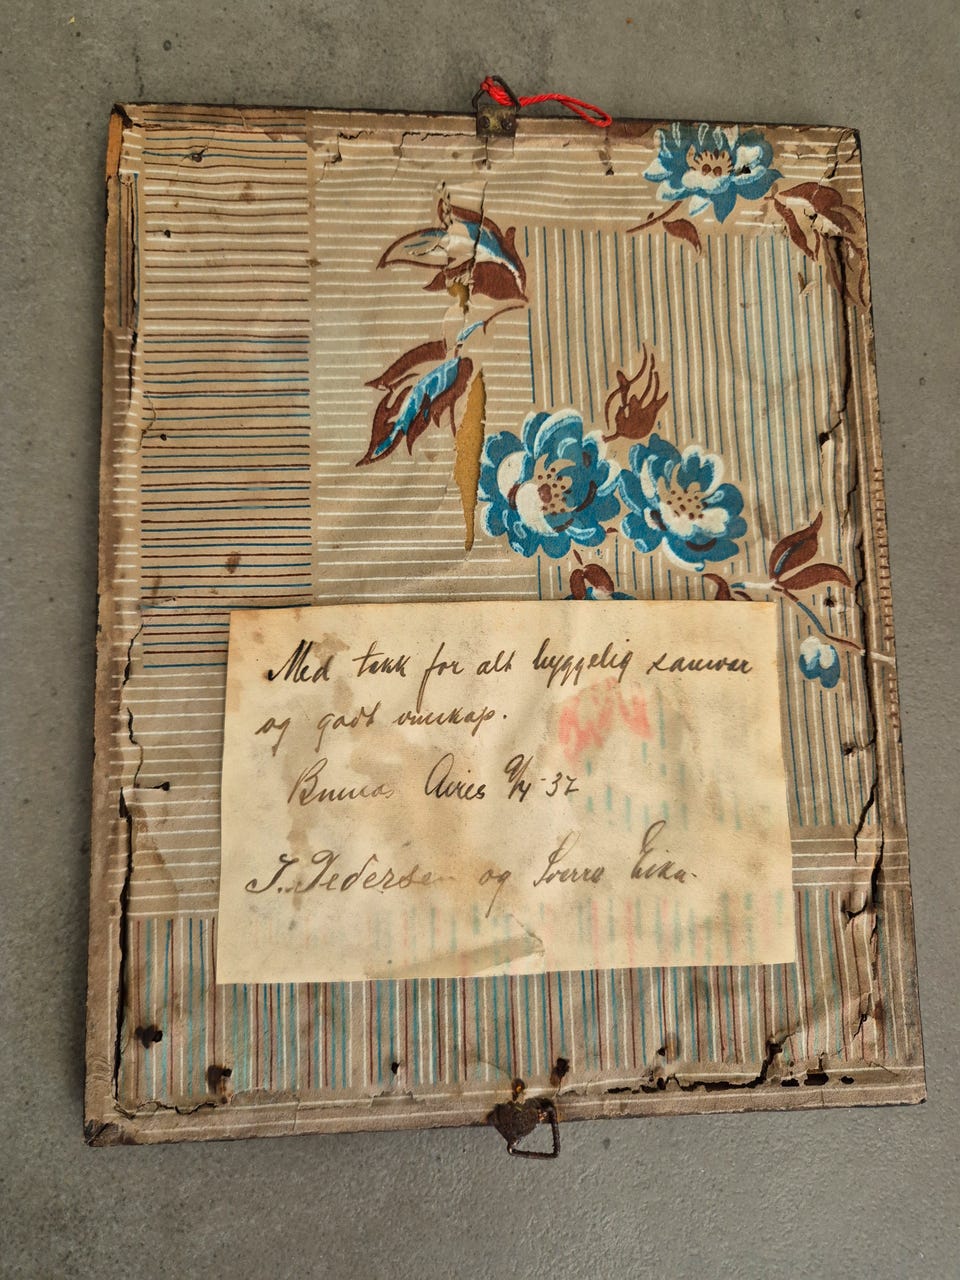 Med takk for alt hyggelig samvær
og godt vinskap.
Buenos Aires 9/4-37
J. Pedersen og Sverre Eika.